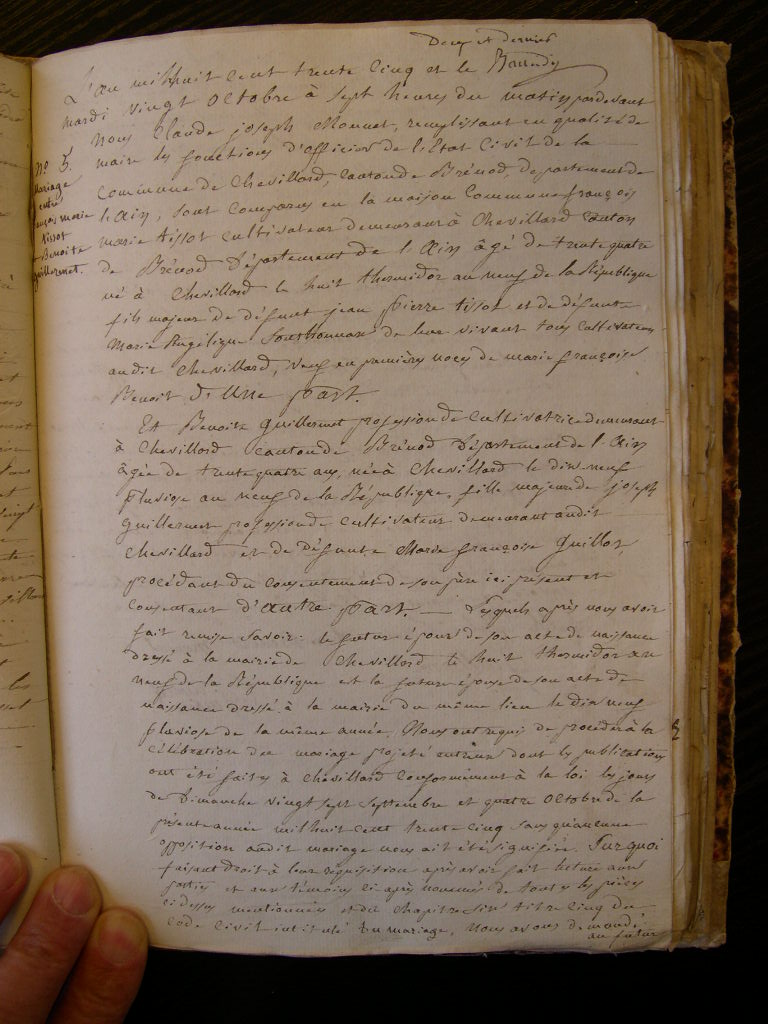 Deux et dernier
L'an mil huit cent trente cinq et le
mardi vingt Octobre à sept heures du matin pardevant
Nous Claude joseph Monnet, remplissant en qualité de
maire les fonctions d'officier de l'Etat Civil de la
commune de Chevillard, Canton de Brénod, département de
l'Ain, sont comparus en la maison Commune françois
marie tissot cultivateur demeurant à Chevillard canton
de Brénod Département de l'Ain âgé de trente quatre
né à Chevillard le huit thermidor an neuf de la République
fils majeur de défunt jean pierre tissot et de défunte
Marie Angélique de leur vivant tous cultivateurs
audit Chevillard, veuf en premières noces de marie françoise
Benoit D'Une part.
Et Benoite Guillermet profession de Cultivatrice demeurant
à Chevillard canton de Brénod Département de l'Ain
âgée de trente quatre ans, née à Chevillard le dix neuf
pluviose an neuf de la République, fille majeure de joseph
Guillermet profession de cultivateur demeurant audit
Chevillard et de Défunte Marie françoise Guillot,
procédant du consentement de son père ici présent et
consentant D'Autre part. — Lesquels après nous avoir
fait remise savoir: le futur époux de son acte de naissance
dressé à la mairie de Chevillard le huit thermidor an
neuf de la République et la future épouse de son acte de
naissance dressé à la mairie du même lieu le dix neuf
pluviose de la même année. Nous ont requis de procéder à la
célébration du mariage projeté entr'eux dont les publications
ont été faites à Chevillard conformément à la loi les jours
de Dimanche vingt sept septembre et quatre Octobre de la
présente année mil huit cent trente cinq sans qu'aucune
opposition audit mariage nous ait été signifiée. Sur quoi
faisant droit à leur réquisition après avoir fait lecture aux
parties et aux témoins ci après nommés de toutes les pièces
ci dessus mentionnées et du chapitre six titre cinq du
Code Civil intitulé du mariage, Nous avons demandé
au futur
N° 5.
Mariage
entre
françois marie
tissot
et Benoite
Guillermet.